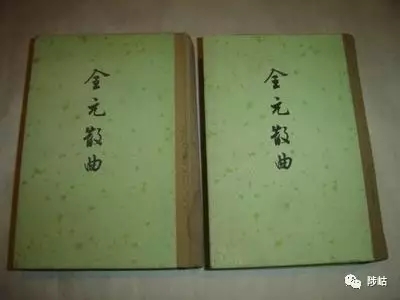 全元散曲
全元散曲
陟岵